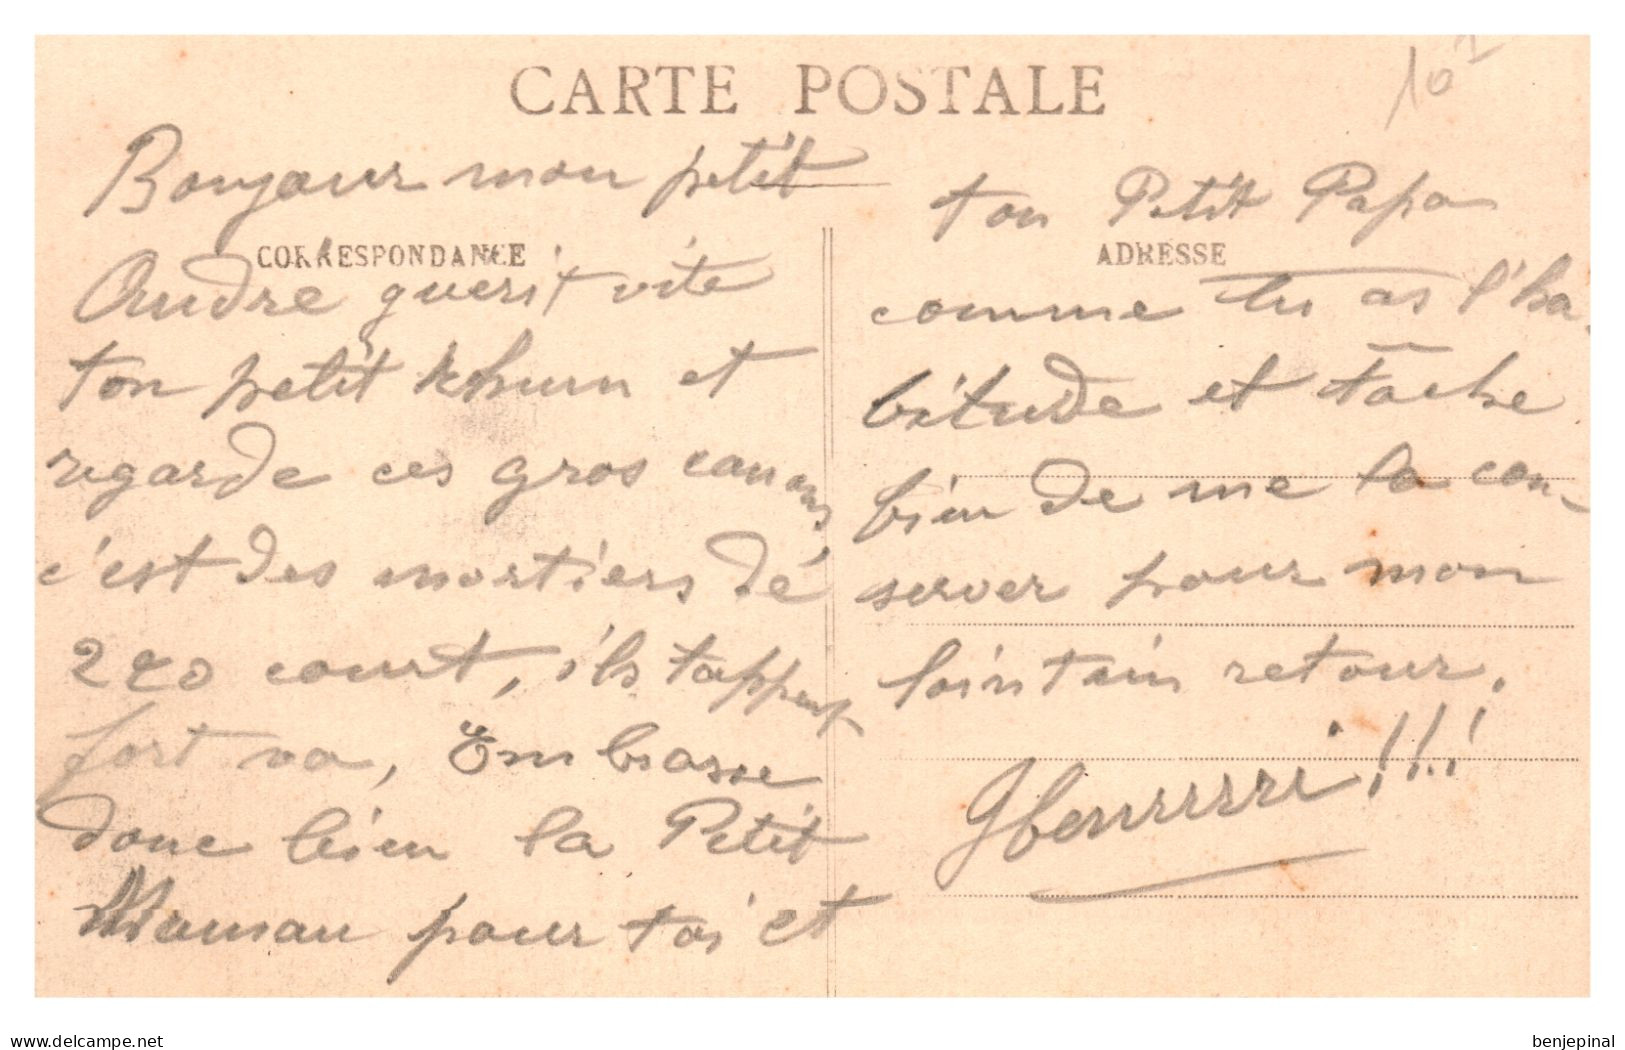 CARTE POSTALE
10
Bonjour mon petit
CORRESPONDANCE
Andre guerit vite
ton petit khum et
regarde ces gros canons
c'est des mortiers de
220 court, ils tappent
fort va, Embrasse
donc bien la Petit
Maman pour toi et
ton Petit Papa
ADRESSE
comme tu as l'ha-
bitude et tâche
bien de me la con-
server pour mon
lointain retour.
!!!
Menu delcampe.net
benjepinal